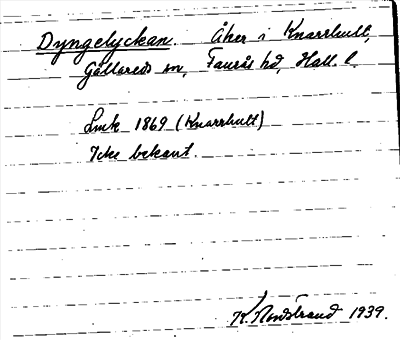 Dyngelyckan. Åker i Knarrhult,
Gällareds sn, Faurås hd, Hall. l.
Lmk 1869 (Knarrhult)
Icke bekant.
K. Nordstrand 1939.